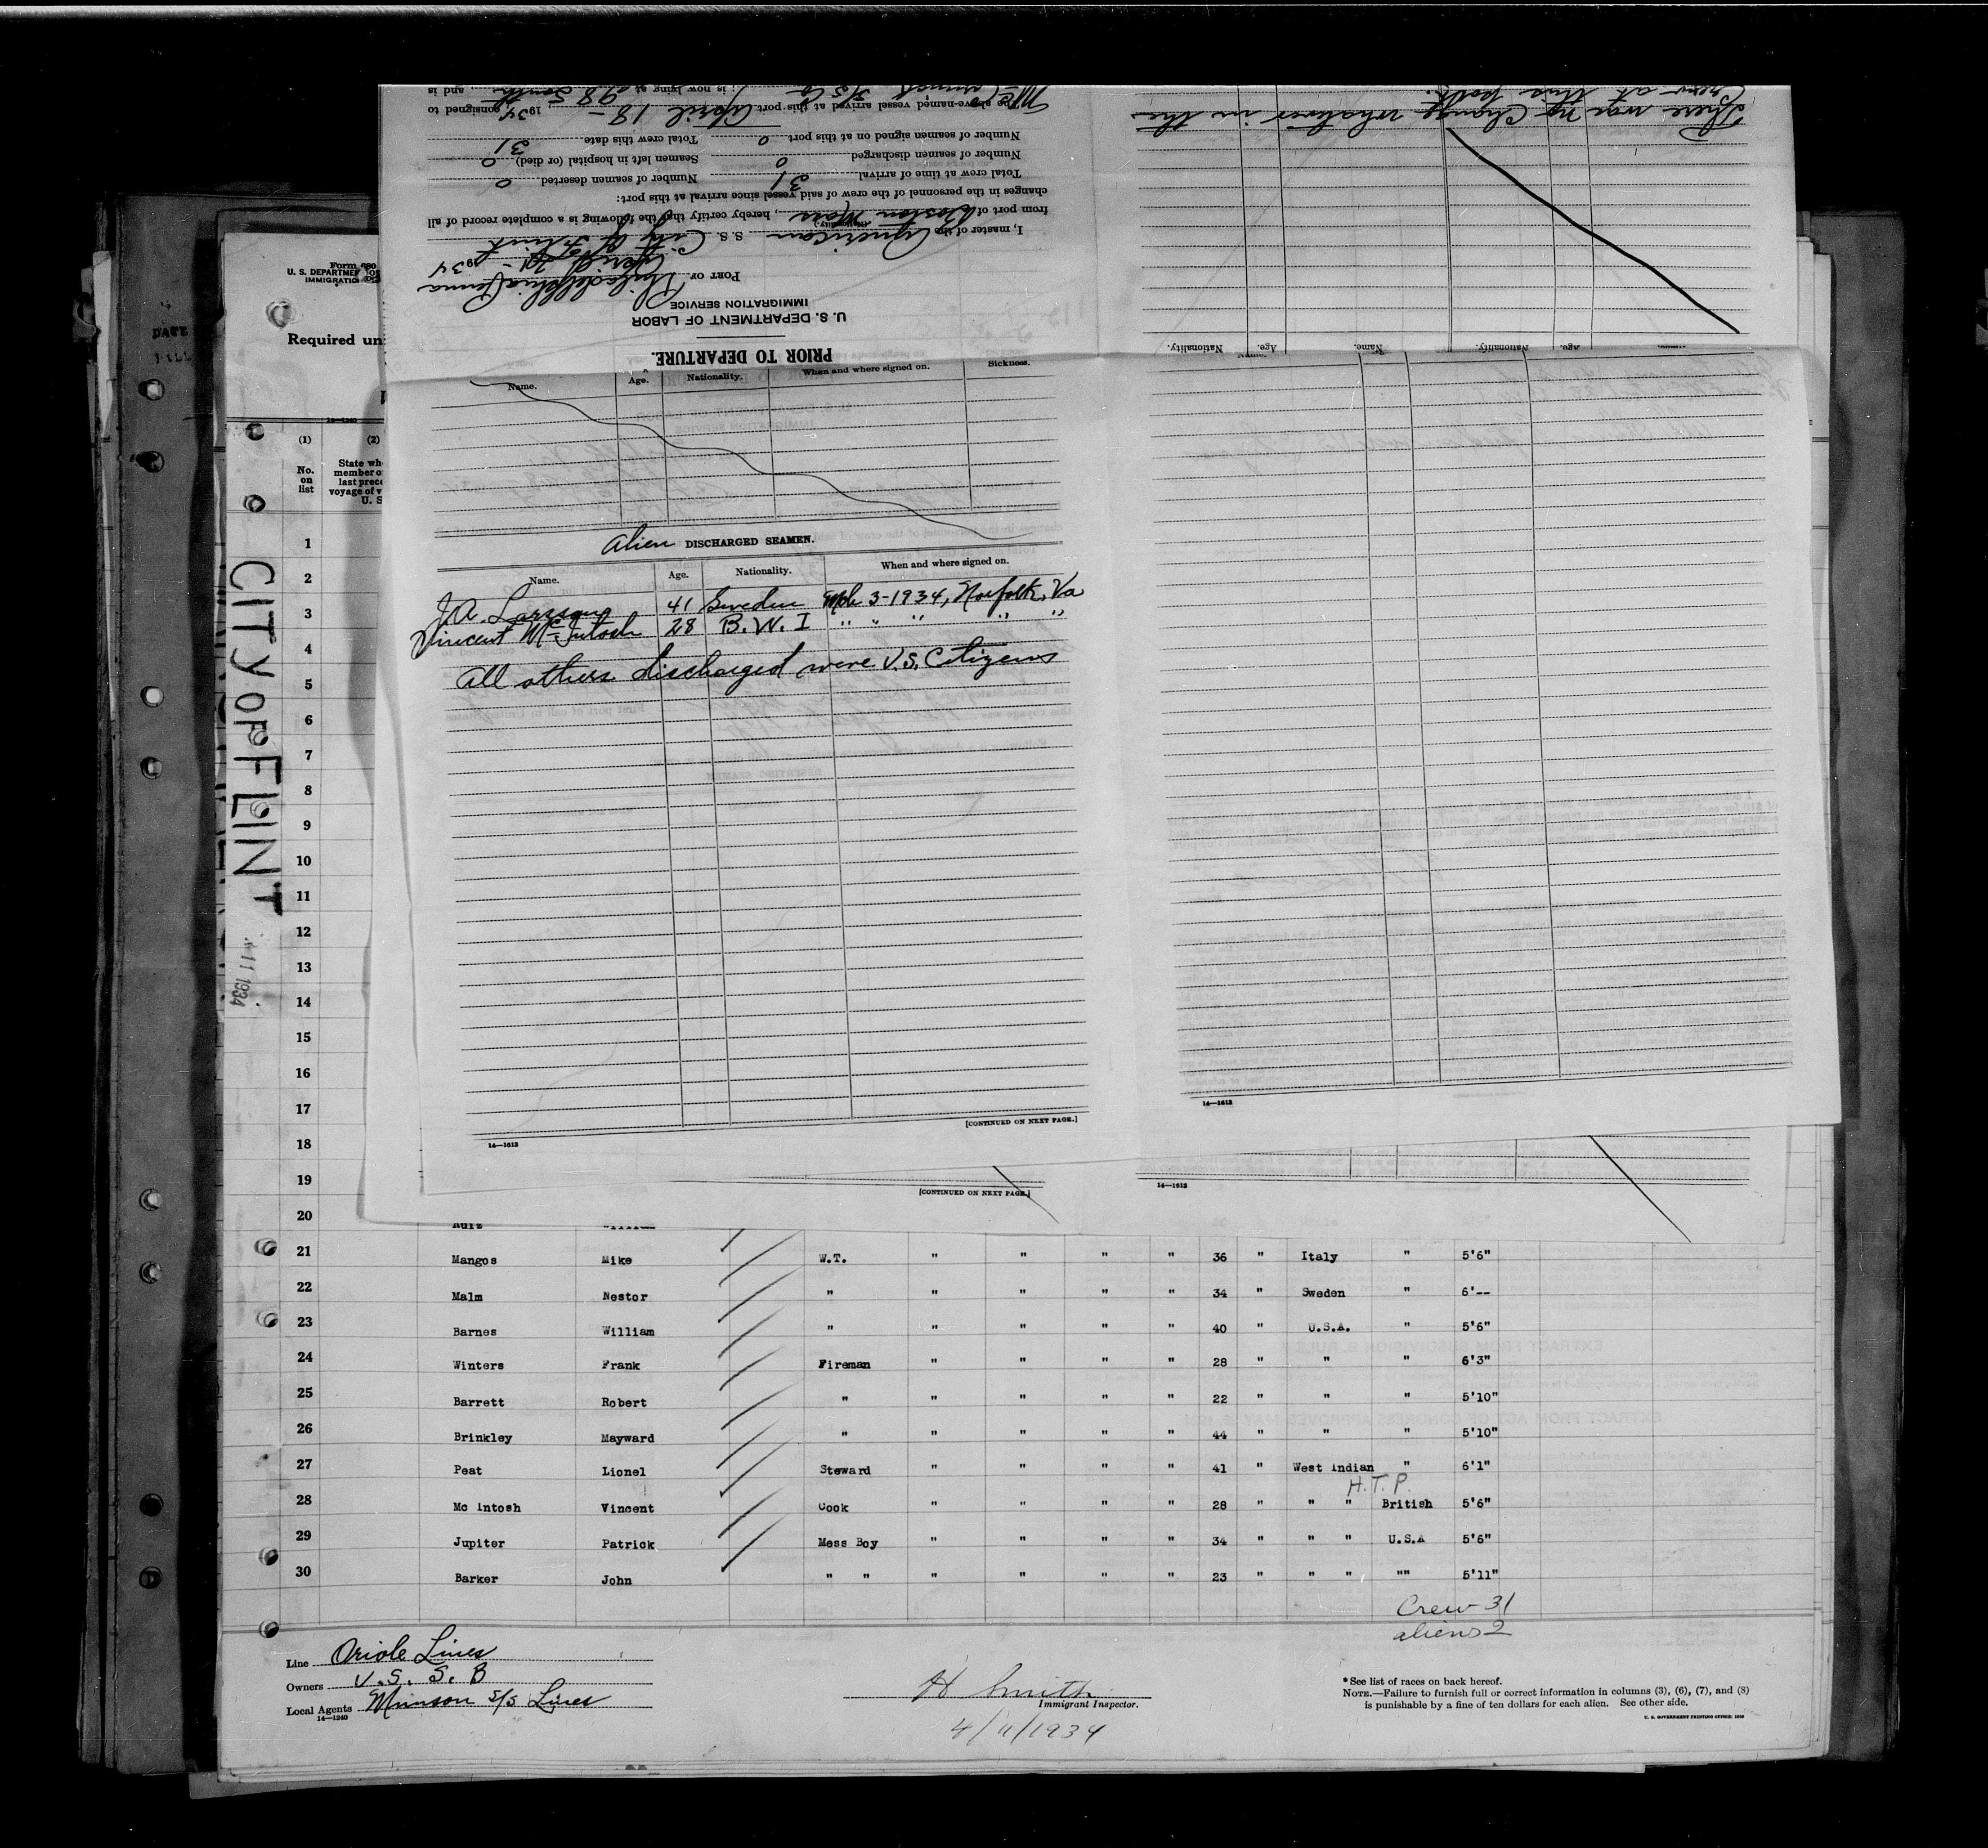 There was no change whatever in the
Crew at this port.
Name. Age. Nationality. Name. Age. Nationality.
PRIOR TO DEPARTURE.
U. S. DEPARTMENT OF LABOR
IMMIGRATION SERVICE
PORT OF Philadelphia Penna
April 21 - 1934
I, master of the American S. S. City of Flint
(Nationality.)
from port of Boston Mass, hereby certify that the following is a complete record of all
changes in the personnel of the crew of said vessel since arrival at this port:
Total crew at time of arrival 31 Number of seamen deserted 0
Number of seamen discharged 0 Seamen left in hospital (or died) 0
Number of seamen signed on at this port 0 Total crew this date 31
The above-named vessel arrived at this port April 18 - 1934, consigned to
is now lying at 98 South, and is
Form 680
U. S. DEPARTMENT OF
IMMIGRATION
Required un
14—1240
(1) (2)
No. on list
State wh
member o
last prece
voyage of v
U. S
CITY OF FLINT
11 1934
DATE
Name. Age. Nationality. When and where signed on. Sickness.
Alien DISCHARGED SEAMEN.
Name. Age. Nationality. When and where signed on.
J.A. Larssong 41 Sweden Mch 3-1934, Norfolk, Va
Vincent McIntosh 28 B.W.I " " " " "
All others discharged were U.S. Citizens
[CONTINUED ON NEXT PAGE.]
14—1613
14—1613
[CONTINUED ON NEXT PAGE.]
14—1613
1
2
3
4
5
6
7
8
9
10
11
12
13
14
15
16
17
18
19
20 Ruiz William
21 Mangos Mike W.T. " " " " 36 " Italy " 5'6"
22 Malm Nestor " " " " " 34 " Sweden " 6'--
23 Barnes William " " " " " 40 " U.S.A. " 5'6"
24 Winters Frank Fireman " " " " 28 " " " 6'3"
25 Barrett Robert " " " " " 22 " " " 5'10"
26 Brinkley Mayward " " " " " 44 " " " 5'10"
27 Peat Lionel Steward " " " " 41 " West Indian " 6'1"
H.T.P.
28 Mc Intosh Vincent Cook " " " " 28 " " " British 5'6"
29 Jupiter Patrick Mess Boy " " " " 34 " " " U.S.A 5'6"
30 Barker John " " " " " " 23 " " " "" 5'11"
Crew 31
aliens 2
Line Oriole Lines
Owners U.S. S. B
Local Agents Munson S/S Lines
14—1240
H Smith
Immigrant Inspector.
4/11/1934
* See list of races on back hereof.
NOTE.—Failure to furnish full or correct information in columns (3), (6), (7), and (8)
is punishable by a fine of ten dollars for each alien. See other side.
U. S. GOVERNMENT PRINTING OFFICE: